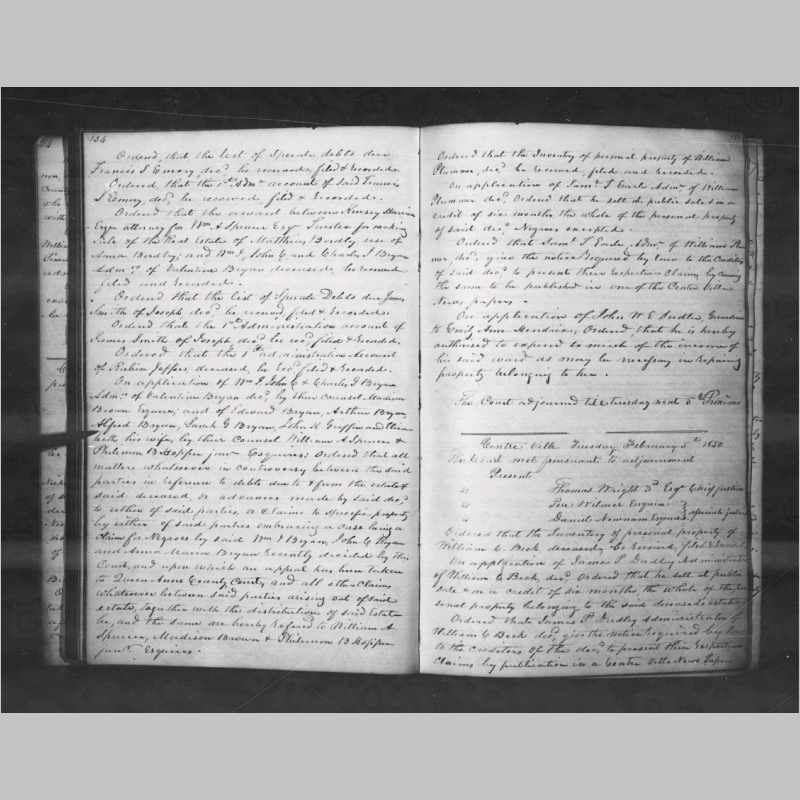 134
Ordered, that the list of Sperate debts due
Francis S Emory decd be received, filed & Recorded.
Ordered, that the 1st Admn account of said Francis
S Emory, decd be received filed & Recorded.
Ordered that the award between Kinsey Harrison
Esqr attorney for Wm A Spencer Esqr Trustee for making
sale of the Real Estate of Matthias Bordly use of
Anna Bordly; and Wm I, John C and Charles I Bryan
Admrs of Valentine Bryan deceased, be received
filed and Recorded.
Ordered that the list of Sperate Debts due James
Smith of Joseph decd be received, filed & Recorded.
Ordered that the 1st Administration account of
James Smith of Joseph decd be recd filed & Recorded.
Ordered that the 1st administration Account
of Rubin Jeffers, deceased, be recd filed & Recorded.
On application of Wm I, John C & Charles I Bryan
Admrs of Valentine Bryan decd by their Counsel Madison
Brown Esquire; and of Edward Bryan, Arthur Bryan,
Alfred Bryan, Sarah G Bryan, John H Griffin and
beth his wife, by their Counsel William A Spencer &
Philemon B Hopper junr Esquires: Ordered that all
matters whatsoever in controversy between the said
parties in reference to debts due to & from the estate of
said deceased, or advances made by said decd
to either of said parties, or Claims to specific property
by either of said parties embracing a case being a
Claim for Negroes by said Wm I Bryan, John C Bryan
and Anna Maria Bryan recently decided by this
Court, and upon which an appeal has been taken
to Queen Anns County Court, and all other Claims
whatsoever between said parties arising out of said
estate, together with the distribution of said Estate
be, and the same are hereby refered to William A
Spencer, Madison Brown & Philemon B Hopper
junr Esquires.
Ordered that the Inventory of personal property of William
Plummer, decd be received, filed and recorded.
On application of Saml T Earle Admr of William
Plummer decd Ordered that he sell at public sale on a
credit of six months the whole of the personal property
of said decd Negroes excepted.
Ordered that Saml T Earle, Admr of William Plum
mer, decd give the notice required by law to the Creditors
of said decd to present their respective Claims by causing
the same to be published in one of the Centre Ville
News papers.
On application of John W E Sudler, Guardian
to Emily Ann Hendrix, Ordered that he is hereby
authorised to expend so much of the income of
his said ward as may be necessary in repairing
property belonging to her.
The Court adjourned till tuesday next 5th Proximo
Centre Ville Tuesday February 5th 1850
The Court met pursuant to adjournment
Present
" Thomas Wright 3d Esqr Chief justice
" Wilmer Esquire
" Daniel Newnam Esquire associate justices
Ordered that the Inventory of personal property of
William C Beck deceased, be received, filed & recorded
On application of James P Dudley Administrator
of William C Beck, decd Ordered that he sell at public
sale & on a credit of six months, the whole of the per
sonal property belonging to the said deceased's estate
Ordered that James P Dudley Administrator of
William C Beck decd give the notice required by law
to the creditors of the decd to present their respective
Claims by publication in a Centre Ville News Paper